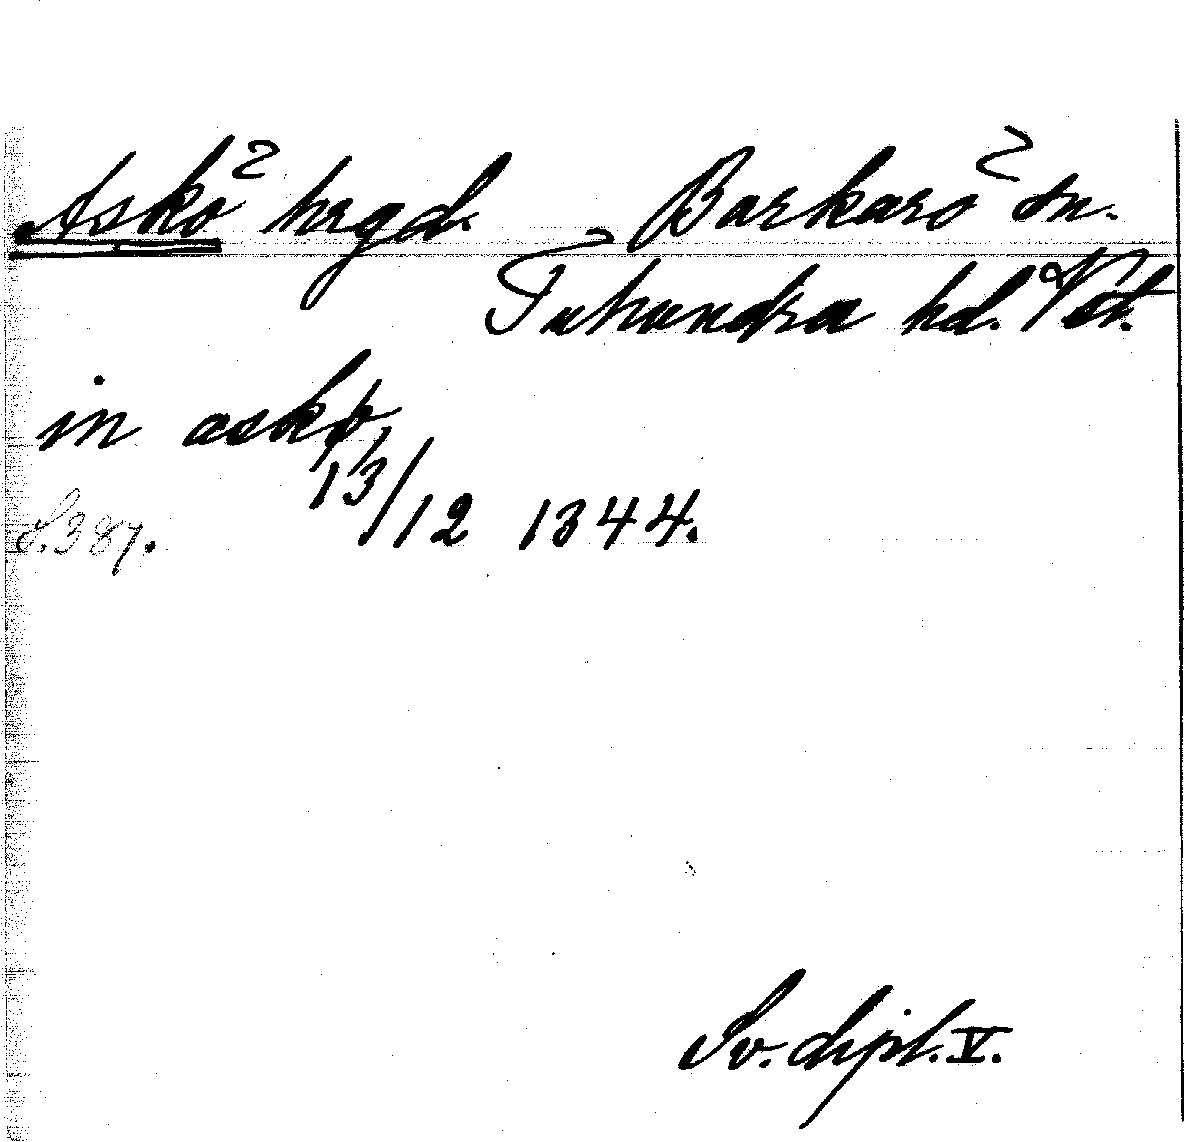 Askö hrgd. Barkarö sn.
Tuhundra hd. Vst.
in askø
13/12 1344.
S. 387.
Sv. dipl. V.